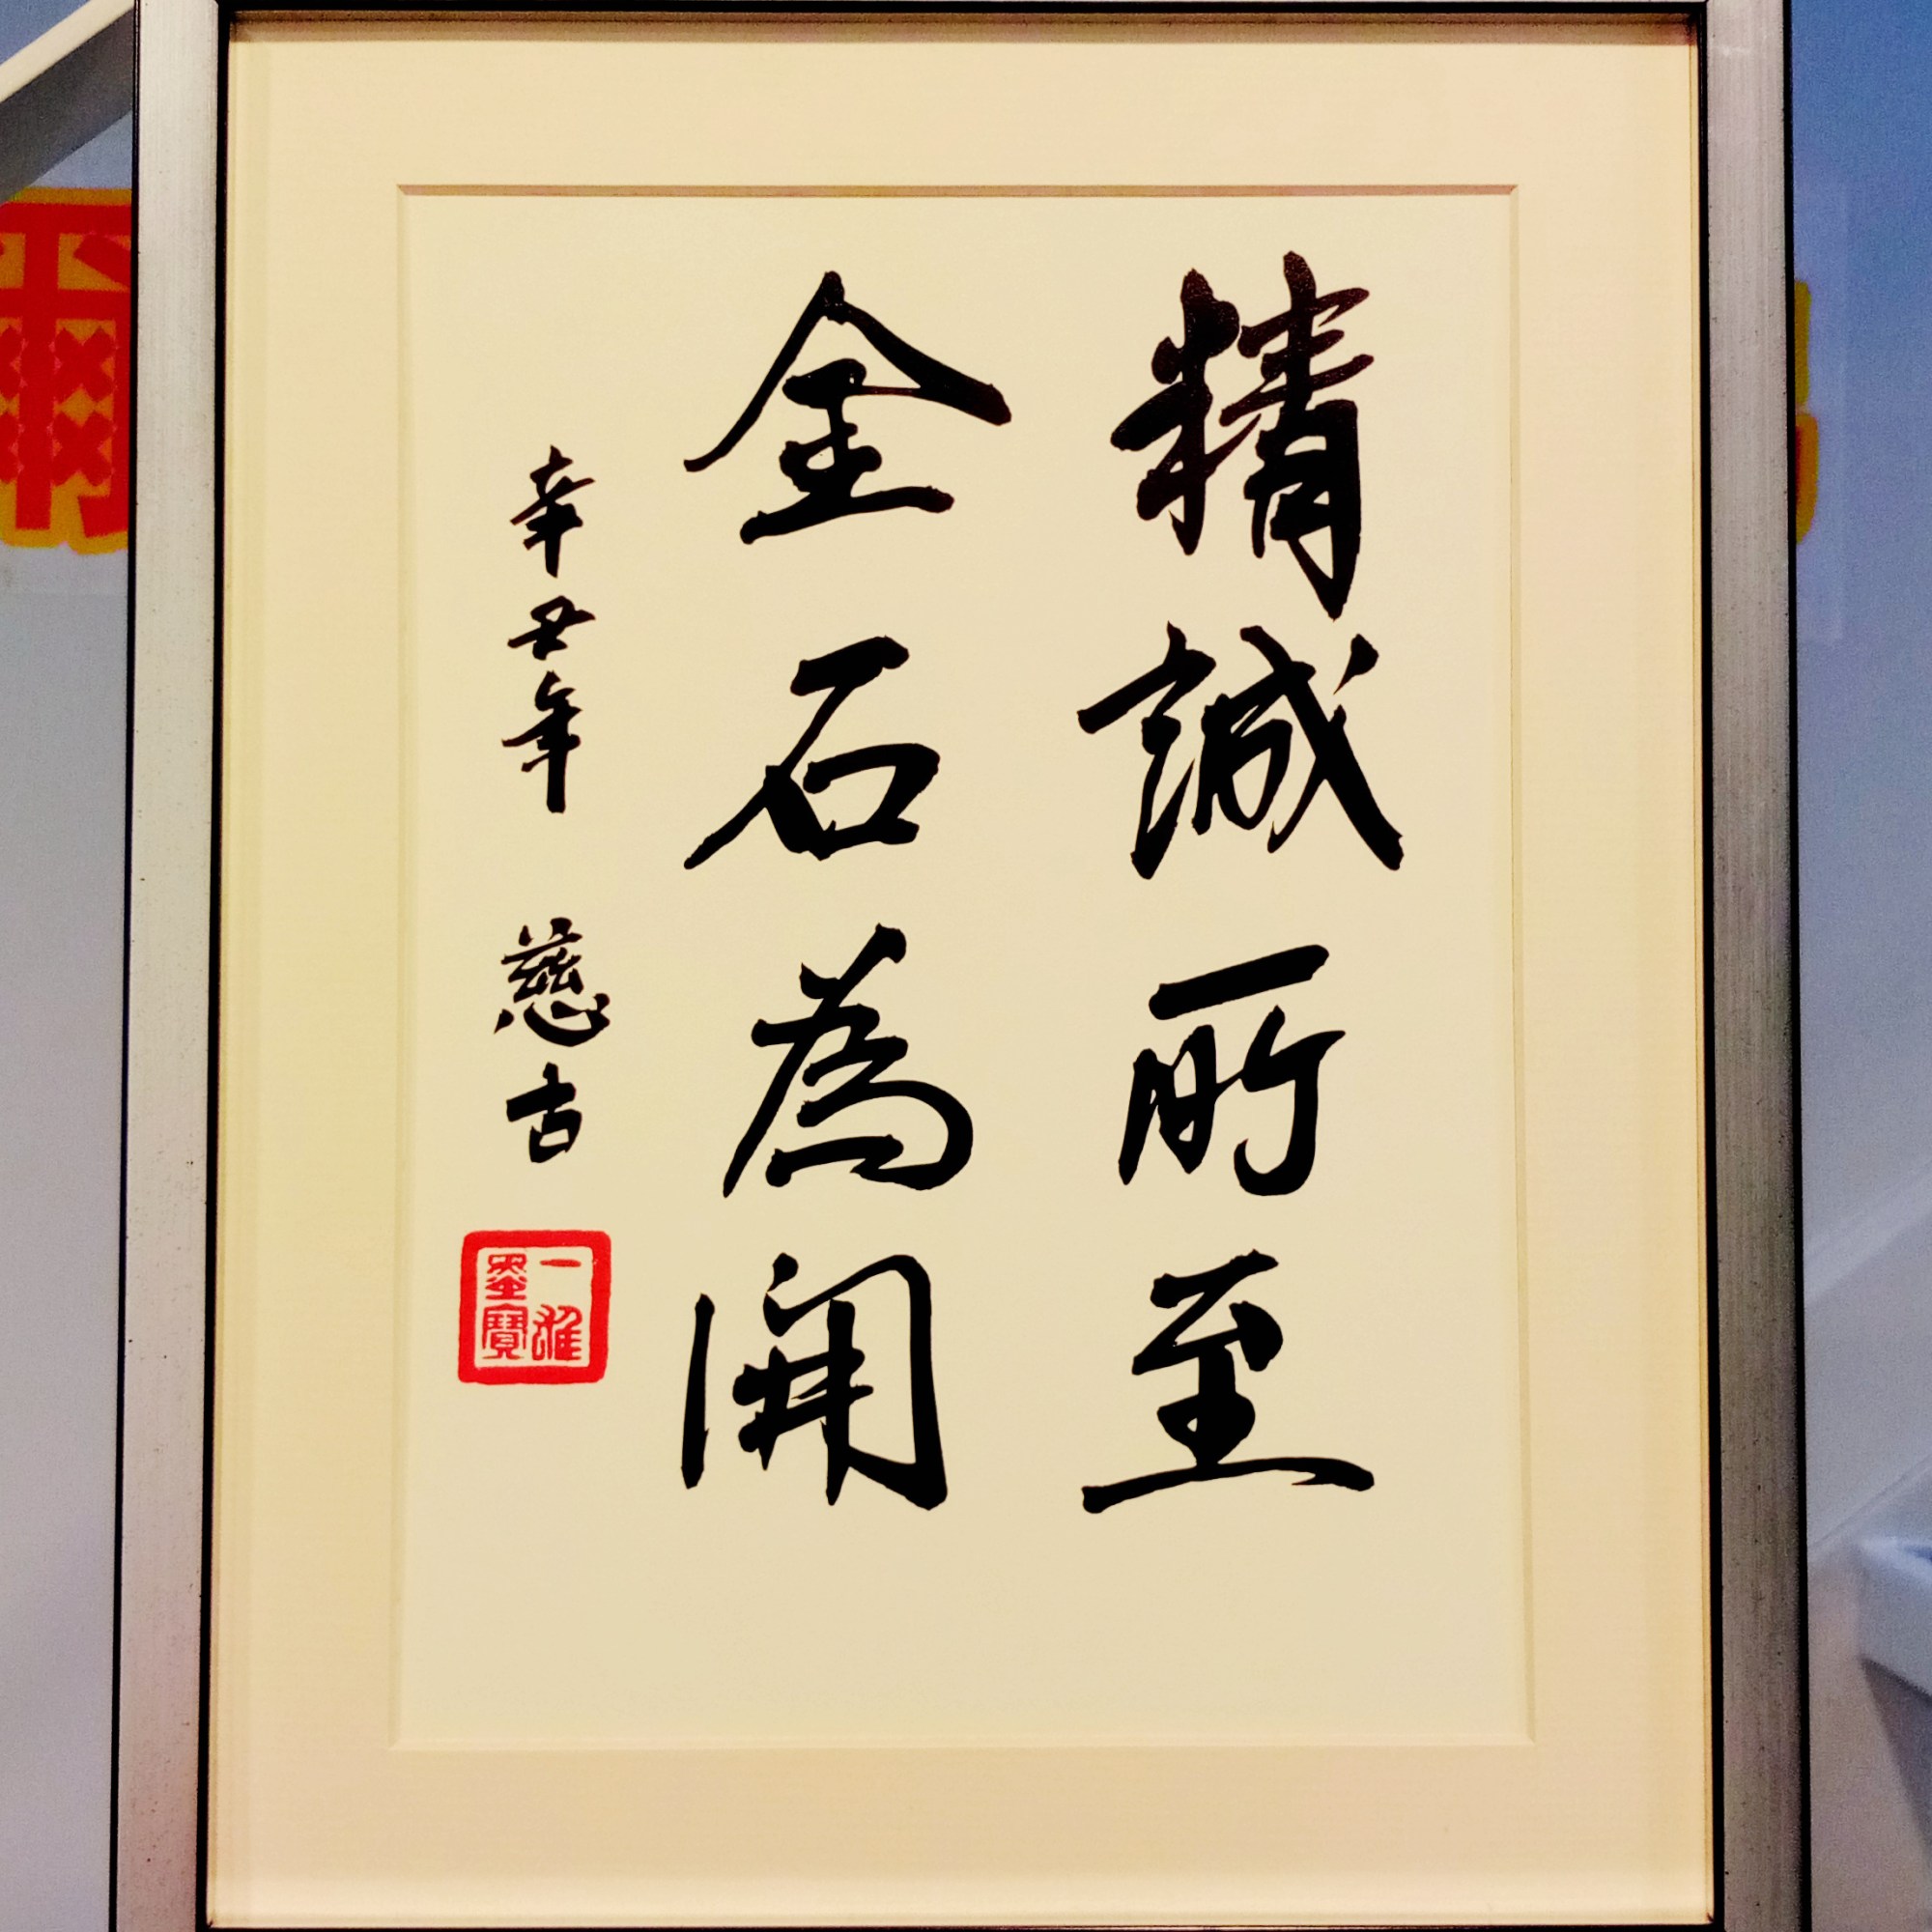 精誠所至
金石為開
辛丑年 慈古
一雅墨寶